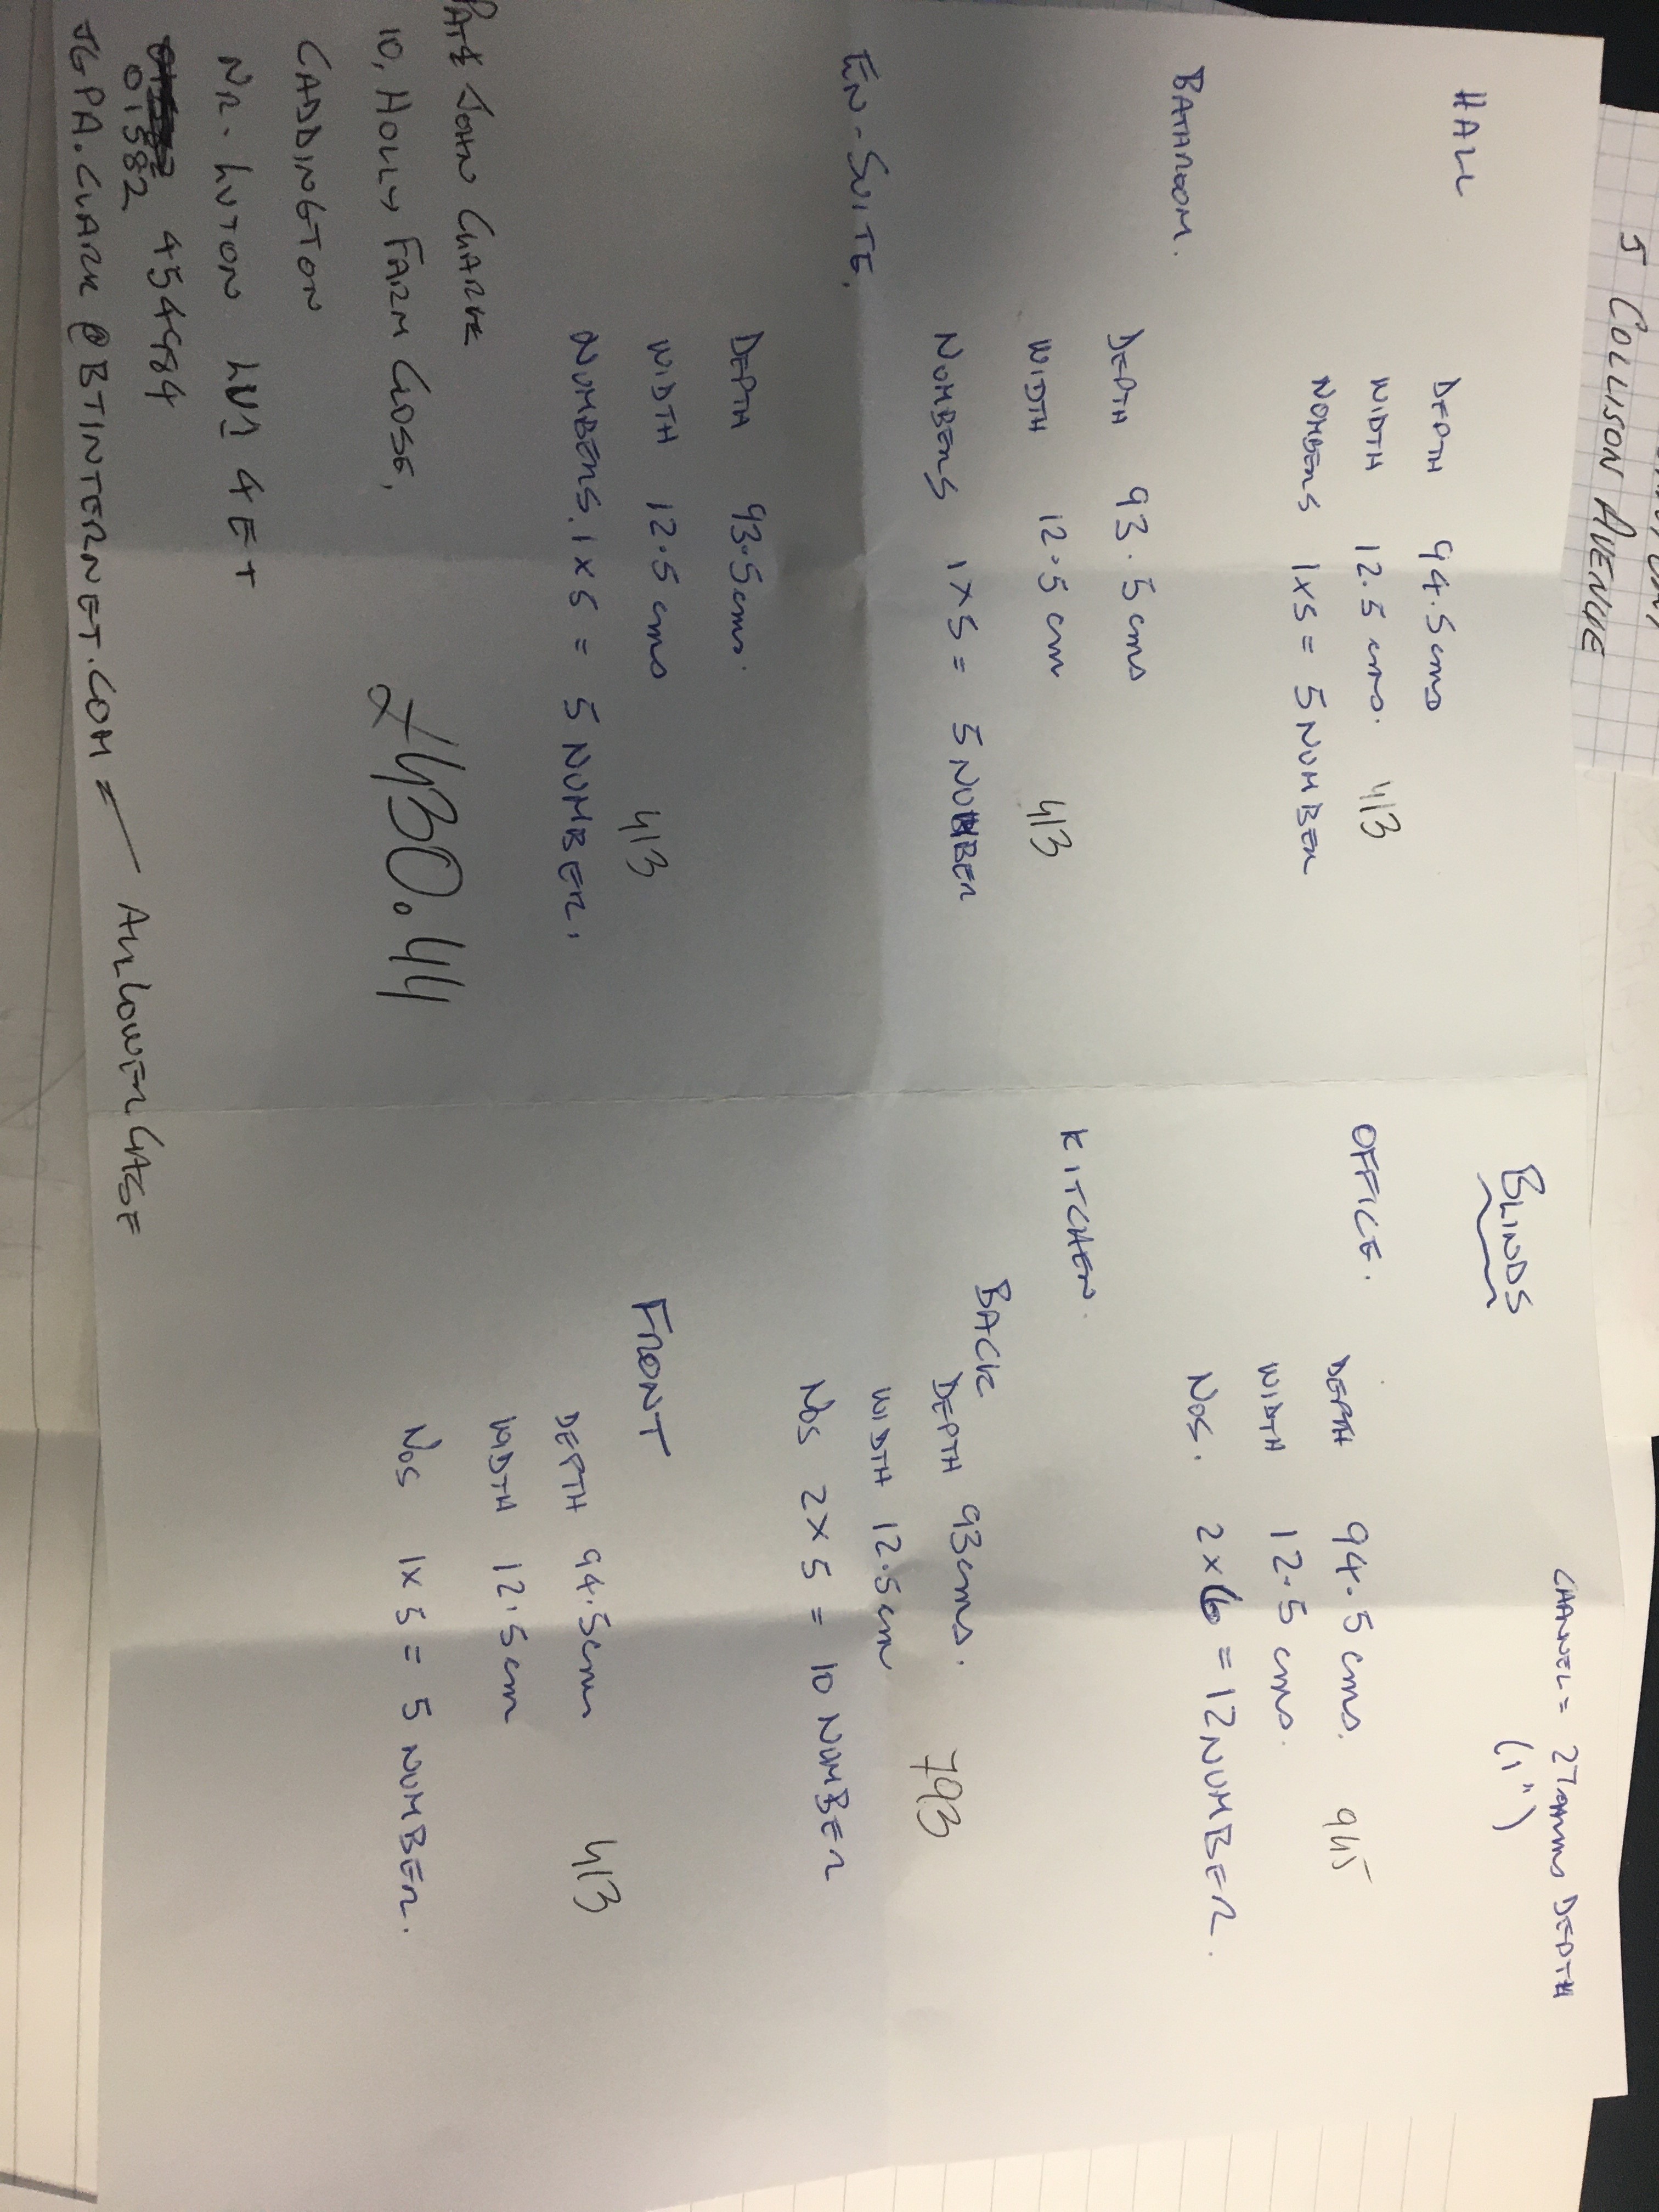 5 COLLISON AVENUE
HALL
DEPTH 94.5cms
WIDTH 12.5 cms. 413
NUMBERS 1x5 = 5 NUMBER
BATHROOM.
DEPTH 93.5cms
WIDTH 12.5 cm 413
NUMBERS 1x5 = 5 NUMBER
EN-SUITE.
DEPTH 93.5cms.
WIDTH 12.5 cms 413
NUMBERS. 1x5 = 5 NUMBER.
PAT & JOHN CLARKE
10, HOLLY FARM CLOSE,
£430.44
CADDINGTON
NR. LUTON LU1 4ET
01582 454984
JGPA.CLARK@BTINTERNET.COM = ALL LOWER CASE
CHANNEL = 27mms DEPTH
(1")
BLINDS
OFFICE.
DEPTH 94.5 cms. 945
WIDTH 12.5 cms.
NOS. 2x6 = 12 NUMBER.
KITCHEN.
BACK
DEPTH 93cms. 793
WIDTH 12.5cm
NOS 2x5 = 10 NUMBER
FRONT
DEPTH 94.5cm 413
WIDTH 12.5cm
NOS 1x5 = 5 NUMBER.